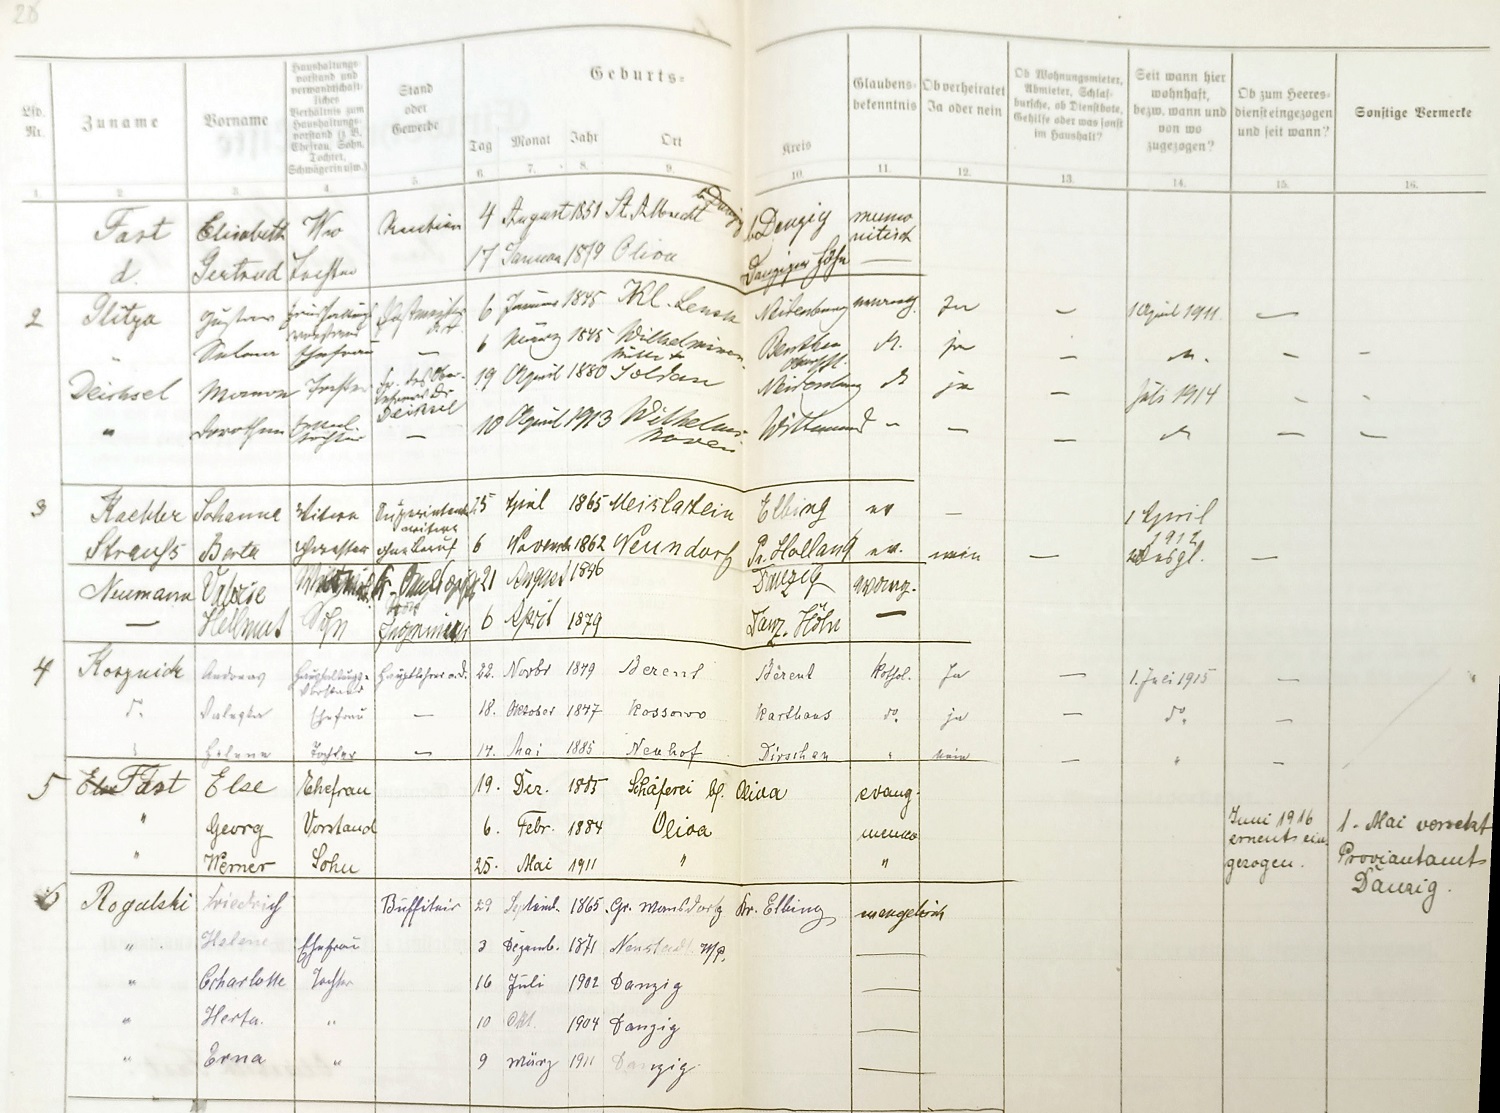 28
Lfd. Nr.
Zuname
Vorname
Haushaltungsvorstand und verwandtschaftliches Verhältnis zum Haushaltungsvorstand (z. B. Ehefrau, Sohn, Tochter, Schwägerin usw.)
Stand oder Gewerbe
Geburts-
Tag Monat Jahr Ort Kreis
Glaubensbekenntnis
Ob verheiratet Ja oder nein
Ob Wohnungsmieter, Abmieter, Schlafbursche, ob Dienstbote, Gehilfe oder was sonst im Haushalt?
Seit wann hier wohnhaft, bezw. wann und von wo zugezogen?
Ob zum Heeresdienst eingezogen und seit wann?
Sonstige Vermerke
1. 2. 3. 4. 5. 6. 7. 8. 9. 10. 11. 12. 13. 14. 15. 16.
Fast Elisabeth 4 August 1851 St. Albrecht b Danzig menno nitisch
d. Gertrud Tochter 17 Januar 1879 Oliva Danziger Höhe —
2 Gustav 6 Januar 1845 Kl. Lensk Neidenburg evang. Ja — 1 April 1911 —
" Ehefrau — 6 März 1845 Wilhelminen Beuthen d. ja — d. — —
Deichsel Tochter Deichsel 19 April 1880 Soldau Neidenburg d ja — Juli 1914 - -
" Dorothea — 10 April 1913 Wilhelmshaven Wittmund " — — d — —
3 Kaehler Johanna 25 1865 Meislatein Elbing ev — 1 April 1912
Strauss Berta Schwester ohne Beruf 6 Novemb 1862 Neundorf Pr. Holland ev. nein — desgl. —
Neumann Valerie 21 August 1846 Danzig evang.
— Hellmut Sohn Ingenieur 6 April 1879 Danz. Höhe —
4 Andreas Haushaltungs-Vorstand Hauptlehrer a.D. 22. Novbr 1849 Berent Berent kathol. Ja — 1. Juli 1915 —
do. Ehefrau — 18. Oktober 1847 Kossowo Karthaus do. ja — do. —
" Helene Tochter — 14. Mai 1885 Neuhof Dirschau " nein — " —
5 Fast Else Ehefrau 19. Dez. 1885 Schäferei bf. Oliva evang.
" Georg Vorstand 6. Febr. 1884 Oliva menno Juni 1916 erneut eingezogen. 1. Mai versetzt Proviantamt Danzig.
" Werner Sohn 25. Mai 1911 " "
6 Rogalski Friedrich Buffetier 29 Septemb. 1865 Gr. Mausdorf Kr. Elbing evangelisch
" Helene Ehefrau 3 Dezemb. 1871 Neustadt W/P. —
" Charlotte Tochter 16 Juli 1902 Danzig —
" Herta. " 10 Okt. 1904 Danzig —
" Erna " 9 März 1911 Danzig —